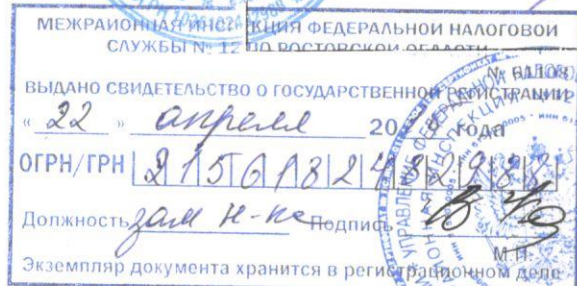 МЕЖРАЙОННАЯ ИНСПЕКЦИЯ ФЕДЕРАЛЬНОЙ НАЛОГОВОЙ
СЛУЖБЫ № 12 ПО РОСТОВСКОЙ ОБЛАСТИ
ВЫДАНО СВИДЕТЕЛЬСТВО О ГОСУДАРСТВЕННОЙ РЕГИСТРАЦИИ
« 22 » апреля 20 года
ОГРН/ГРН 2156182482988
Должность зам н-ка Подпись
М.П.
Экземпляр документа хранится в регистрационном деле